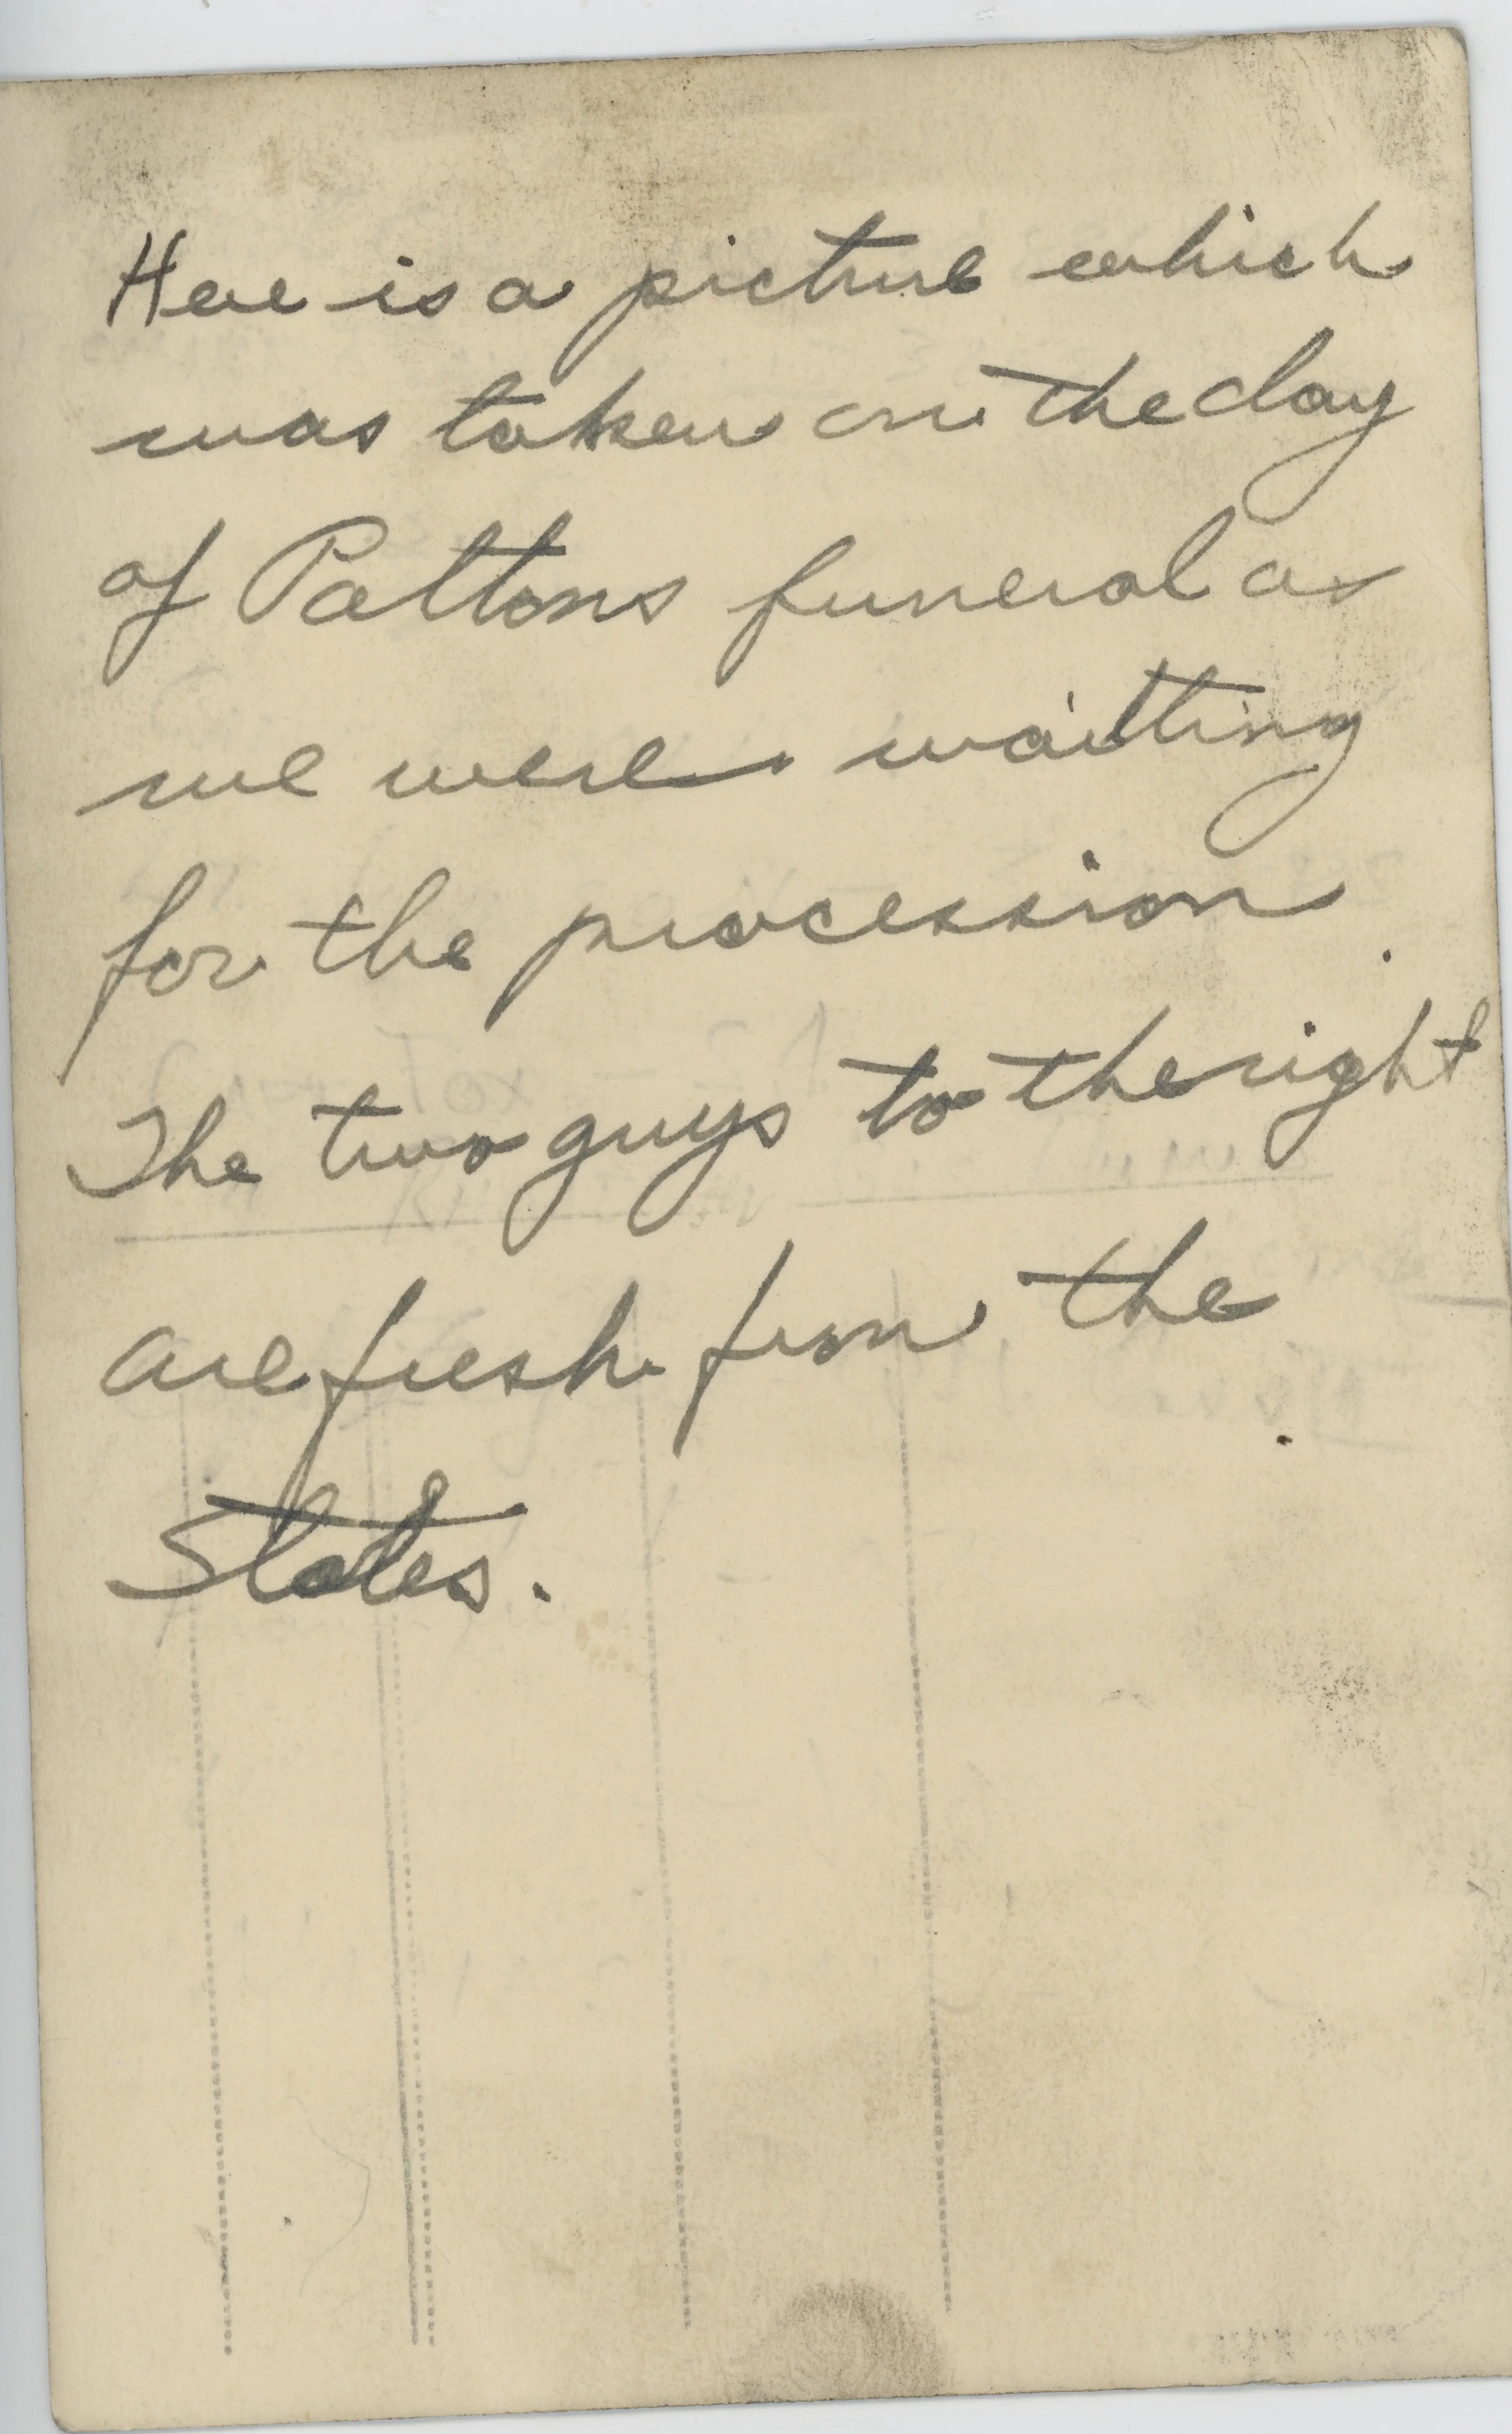 Here is a picture which
was taken on the day
of Pattons funeral as
we were waitting
for the procession.
The two guys to the right
are fresh from the
States.